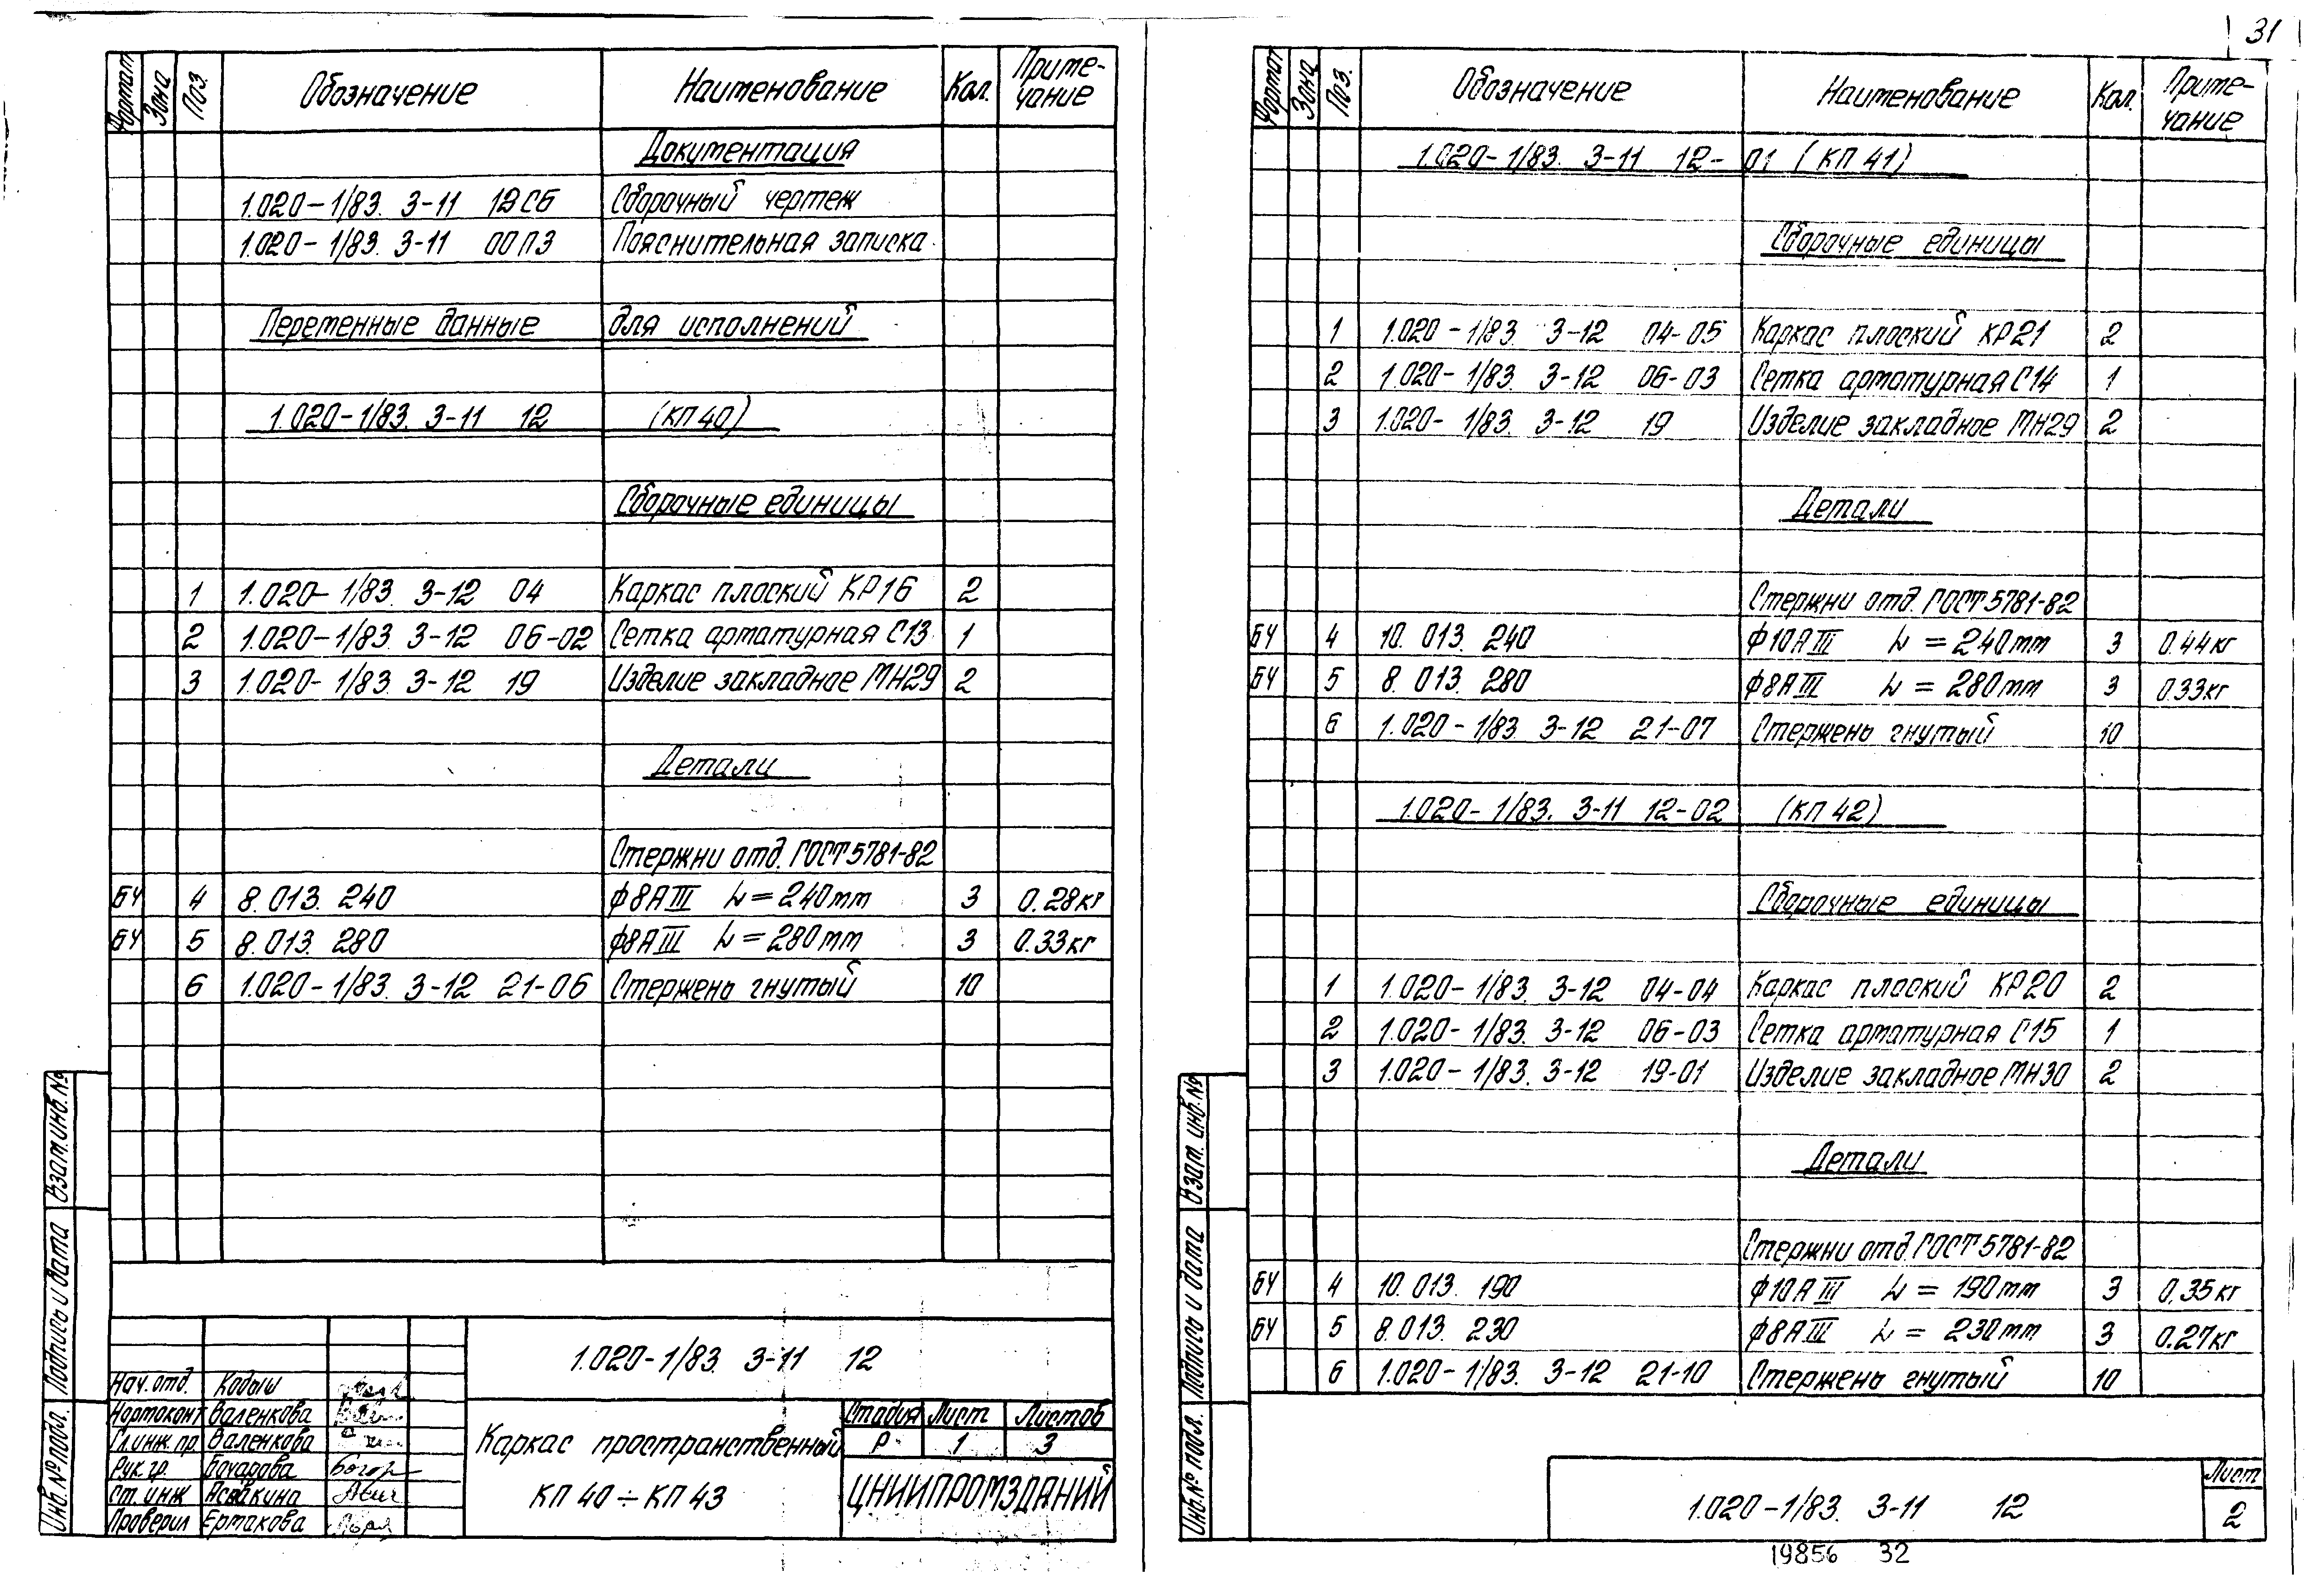 31
Формат Зона Поз. Обозначение Наименование Кол. Приме-
чание
Документация
1.020-1/83. 3-11 12СБ Сборочный чертеж
1.020-1/83. 3-11 00ПЗ Пояснительная записка
Переменные данные для исполнений
1.020-1/83. 3-11 12 (КП 40)
Сборочные единицы
1 1.020-1/83. 3-12 04 Каркас плоский КР16 2
2 1.020-1/83 3-12 06-02 Сетка арматурная С13 1
3 1.020-1/83. 3-12 19 Изделие закладное МН29 2
Детали
Стержни отд. ГОСТ 5781-82
БЧ 4 8. 013. 240 ф8АIII L=240мм 3 0.28кг
БЧ 5 8. 013. 280 ф8АIII L=280мм 3 0.33кг
6 1.020-1/83. 3-12 21-06 Стержень гнутый 10
Взам. инв. №
Подпись и дата
Инв. № подл.
1.020-1/83 3-11 12
Нач. отд. Кодыш
Нормоконт Валенкова
Гл. инж. пр. Валенкова
Рук. гр. Бочарова
Ст. инж Асвакина
Проверил Ермакова
Каркас пространственный
КП 40 ÷ КП 43
Стадия Лист Листов
Р 1 3
ЦНИИПРОМЗДАНИЙ
Формат Зона Поз. Обозначение Наименование Кол. Приме-
чание
1.020-1/83. 3-11 12-01 (КП 41)
Сборочные единицы
1 1.020-1/83. 3-12 04-05 Каркас плоский КР21 2
2 1.020-1/83. 3-12 06-03 Сетка арматурная С14 1
3 1.020-1/83. 3-12 19 Изделие закладное МН29 2
Детали
Стержни отд. ГОСТ 5781-82
БЧ 4 10. 013. 240 ф10АIII L=240мм 3 0.44кг
БЧ 5 8. 013. 280 ф8АIII L=280мм 3 0.33кг
6 1.020-1/83 3-12 21-07 Стержень гнутый 10
1.020-1/83. 3-11 12-02 (КП 42)
Сборочные единицы
1 1.020-1/83. 3-12 04-04 Каркас плоский КР20 2
2 1.020-1/83. 3-12 06-03 Сетка арматурная С15 1
3 1.020-1/83. 3-12 19-01 Изделие закладное МН30 2
Детали
Стержни отд. ГОСТ 5781-82
БЧ 4 10. 013. 190 ф10АIII L=190мм 3 0.35кг
БЧ 5 8.013. 230 ф8АIII L=230мм 3 0.27кг
6 1.020-1/83. 3-12 21-10 Стержень гнутый 10
Взам. инв. №
Подпись и дата
Инв. № подл.
1.020-1/83. 3-11 12
Лист
2
19856 32